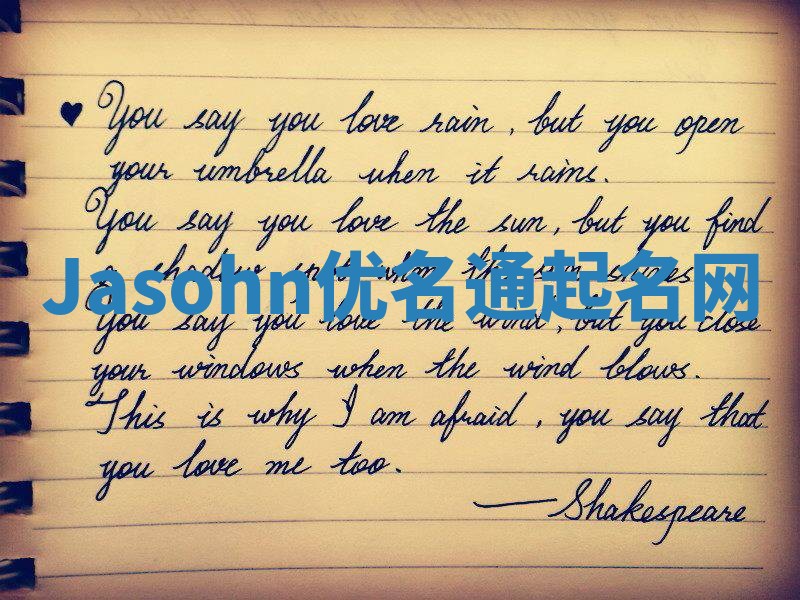 ♥ You say you love rain, but you open
your umbrella when it rains.
You say you love the sun, but you find
a shadow spot when the sun shines.
Jasohn优名通起名网
You say you love the wind, but you close
your windows when the wind blows.
This is why I am afraid, you say that
you love me too.
—Shakespeare